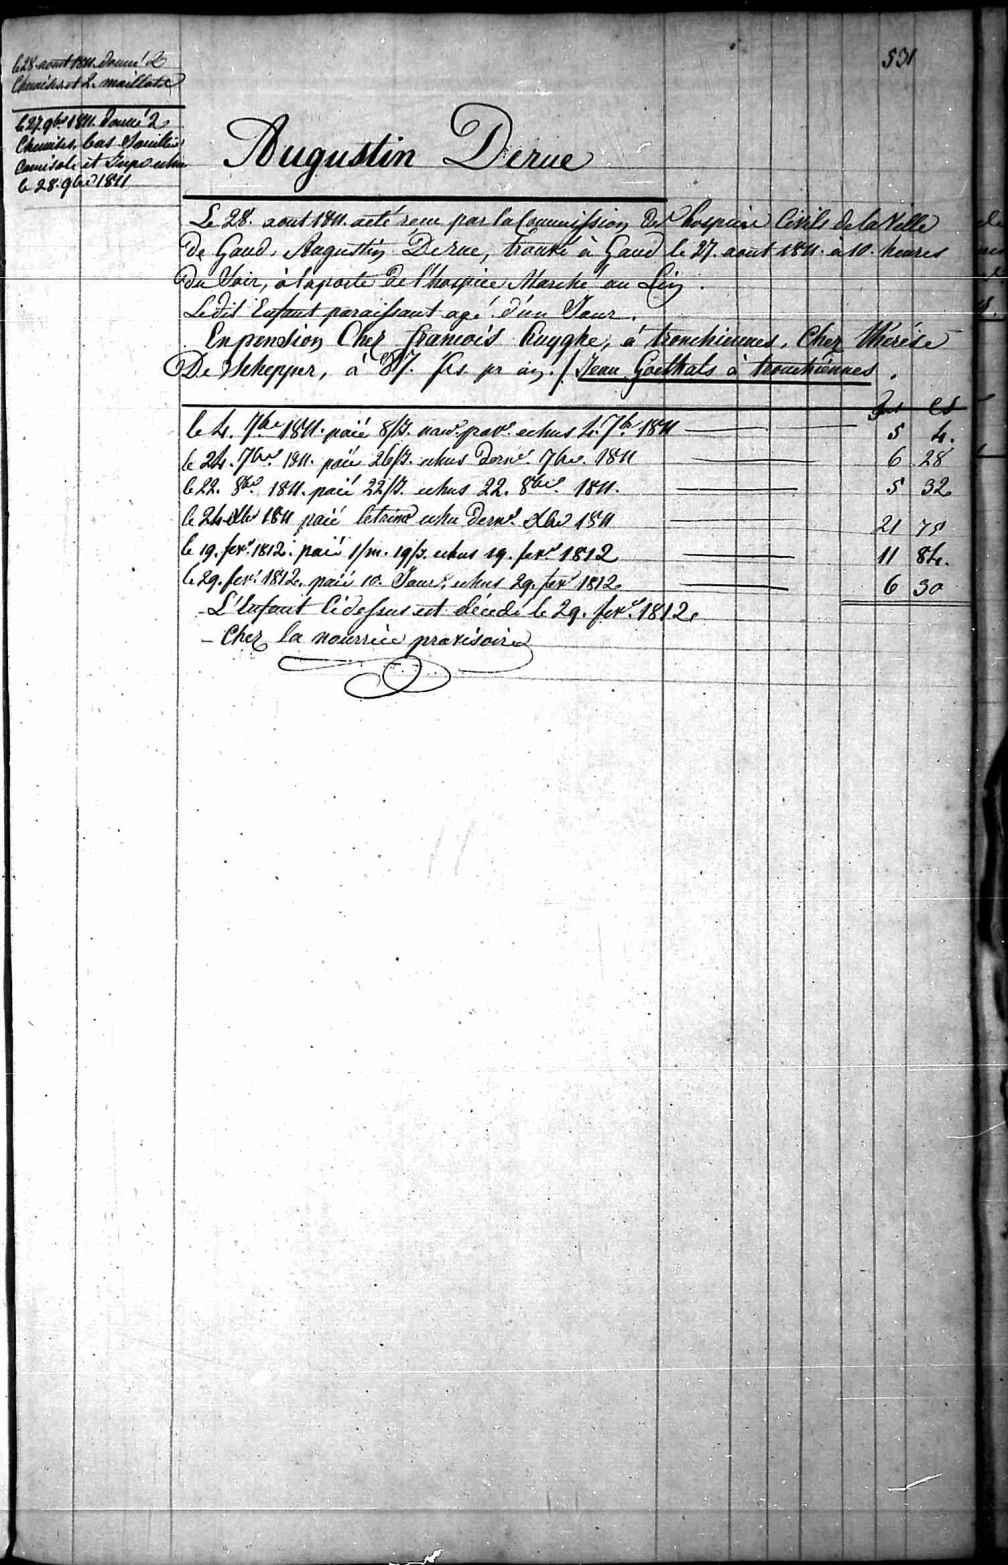 531
le 28 aout 1811. donné 2
Chemises et 2. maillots
le 27. 9bre 1811. donné 2
Chemises, bas Souliers
Camisole et Jupe echu
le 28. 9bre 1811
Augustin Derue
Le 28. aout 1811. a été recu par la Commission des hospices Civils de la Ville
de Gand, Augustin Derue, trouvé à Gand le 27. aout 1811. à 10. heures
du Soir, à la porte de l'hospice Marché au Lin.
Ledit Enfant paraissant agé d'un Jour.
En pension Chez francois à tronchiennes, Chez thérése
De Schepper, à 87. fcs pr an. / Jean Goethals à tronchiennes.
fcs cs
le 4. 7bre 1811. paié 8/J. echus 4. 7b 1811 5 4.
le 24. 7bre 1811. paié 26/J. echus dernr. 7bre. 1811 6 28
le 22. 8bre 1811. paié 22/J. echus 22. 8bre 1811. 5 32
le 24 Xbre 1811 paié letrime echu dernr. Xbre 1811 21 75
le 19. fevr. 1812. paié 1/m. 19/J. echus 19. fevr. 1812 11 84.
le 29. fevr. 1812. paié 10. Jours, echus 29. fevr 1812. 6 30
L'Enfant Cidessus est décédé le 29. fevr. 1812.
– Chez la nourrice provisoire